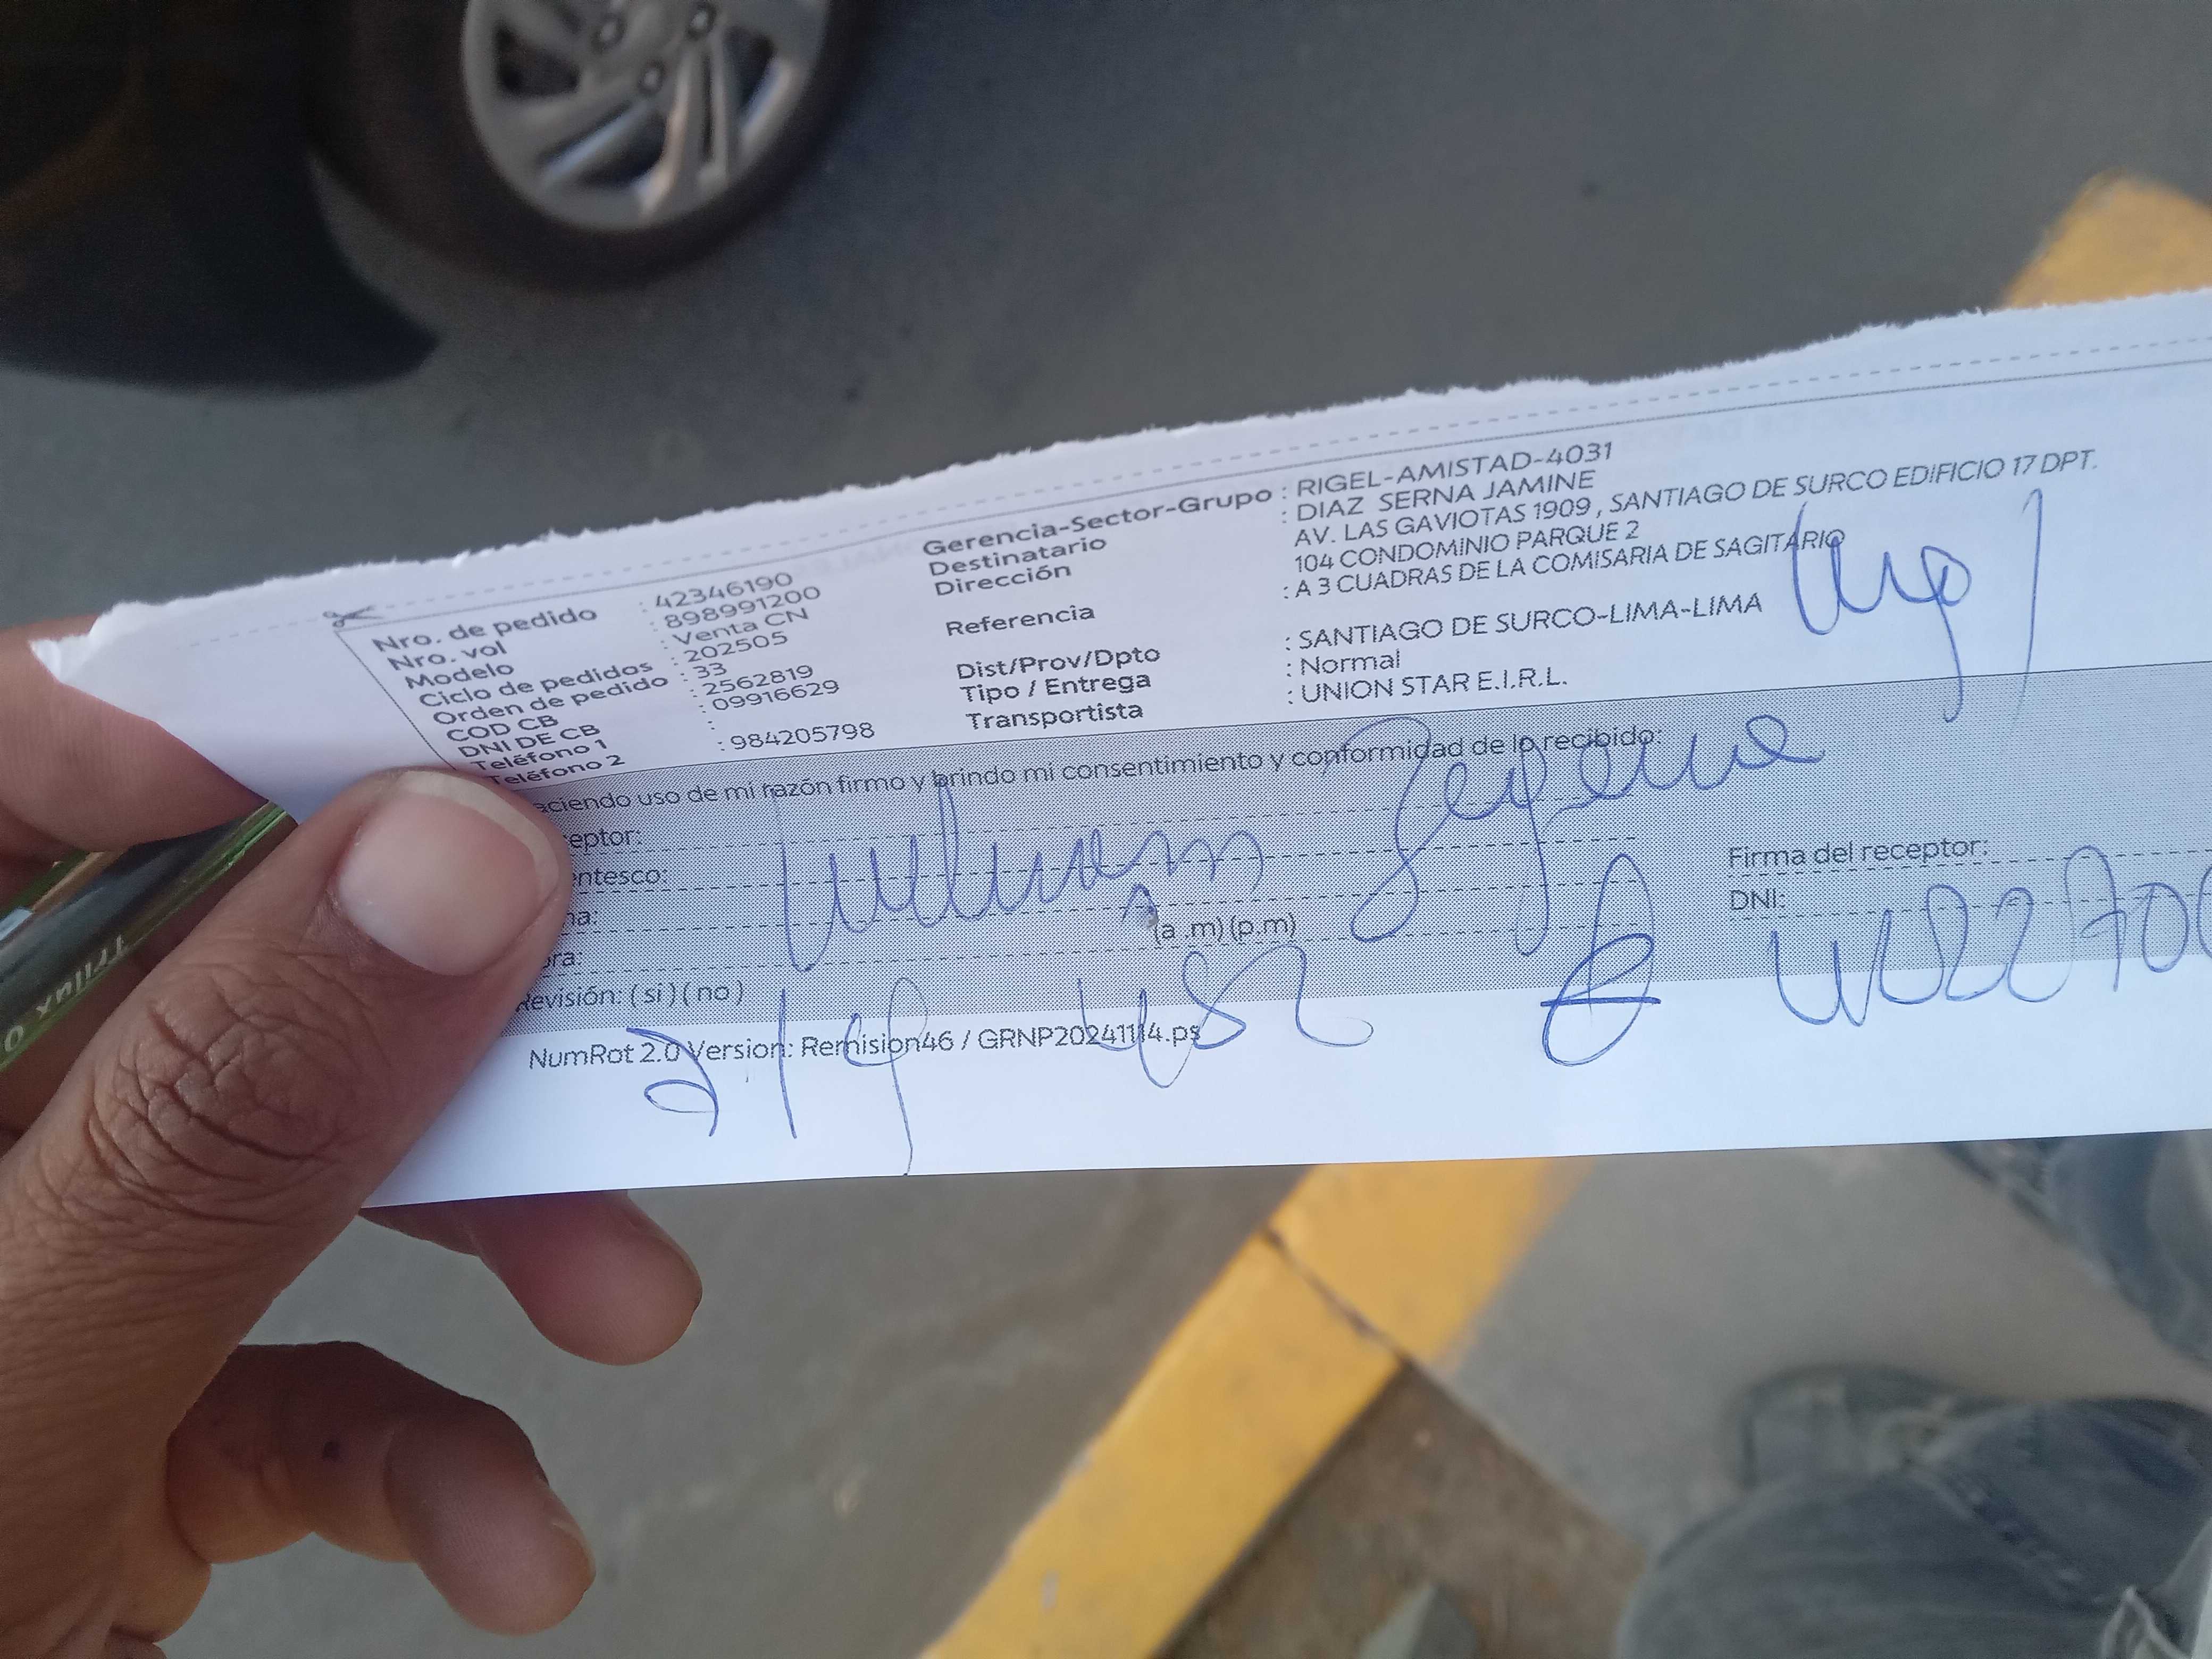 Nro. de pedido : 42346190
Nro. vol : 898991200
Modelo : Venta CN
Ciclo de pedidos : 202505
Orden de pedido : 33
COD CB : 2562819
DNI DE CB : 09916629
Teléfono 1 :
Teléfono 2 : 984205798
Gerencia-Sector-Grupo : RIGEL-AMISTAD-4031
Destinatario : DIAZ SERNA JAMINE
Dirección AV. LAS GAVIOTAS 1909 , SANTIAGO DE SURCO EDIFICIO 17 DPT.
104 CONDOMINIO PARQUE 2
Referencia : A 3 CUADRAS DE LA COMISARIA DE SAGITARIO
Dist/Prov/Dpto : SANTIAGO DE SURCO-LIMA-LIMA
Tipo / Entrega : Normal
Transportista : UNION STAR E.I.R.L.
aciendo uso de mi razón firmo y brindo mi consentimiento y conformidad de lo recibido:
eptor:
entesco:
na:
ora: (a .m) (p.m)
Revisión: ( si ) ( no )
Firma del receptor:
DNI:
NumRot 2.0 Version: Remision46 / GRNP20241114.ps
Trilux 0